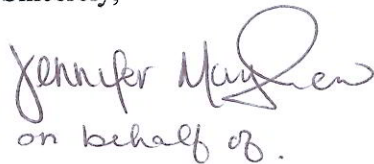 Sincerely,
Jennifer Mayhew
on behalf of.